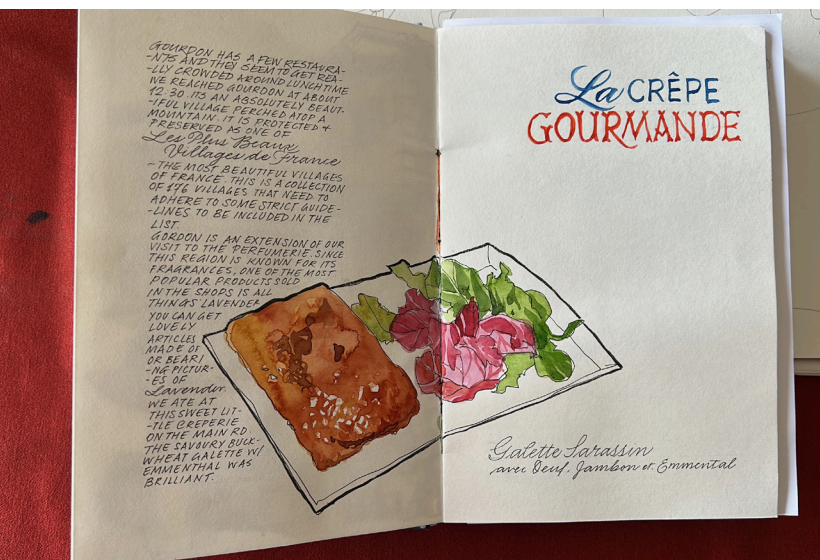 GOURDON HAS A FEW RESTAURA-
-NTS AND THEY SEEM TO GET REA-
-LLY CROWDED AROUND LUNCHTIME
WE REACHED GOURDON AT ABOUT
12.30. ITS AN ABSOLUTELY BEAUT-
-IFUL VILLAGE PERCHED ATOP A
MOUNTAIN. IT IS PROTECTED &
PRESERVED AS ONE OF
Les Plus Beaux
Villages de France
- THE MOST BEAUTIFUL VILLAGES
OF FRANCE. THIS IS A COLLECTION
OF 176 VILLAGES THAT NEED TO
ADHERE TO SOME STRICT GUIDE-
-LINES TO BE INCLUDED IN THE
LIST.
GORDON IS AN EXTENSION OF OUR
VISIT TO THE PERFUMERIE. SINCE
THIS REGION IS KNOWN FOR ITS
FRAGRANCES, ONE OF THE MOST
POPULAR PRODUCTS SOLD
IN THE SHOPS IS ALL
THINGS LAVENDER
YOU CAN GET
LOVELY
ARTICLES
MADE OF
OR BEARI
-NG PICTUR-
-ES OF
Lavender.
WE ATE AT
THIS SWEET LIT-
-TLE CREPERIE
ON THE MAIN RD.
THE SAVOURY BUCK-
WHEAT GALETTE W/
EMMENTHAL WAS
BRILLIANT.
La CRÊPE
GOURMANDE
Galette Sarassin
avec Oeuf, Jambon et Emmental